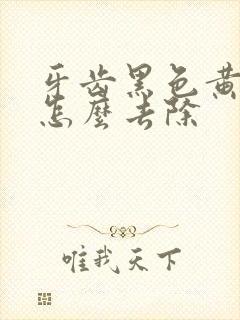 牙齿黑色黄
怎麼去除
唯我天下